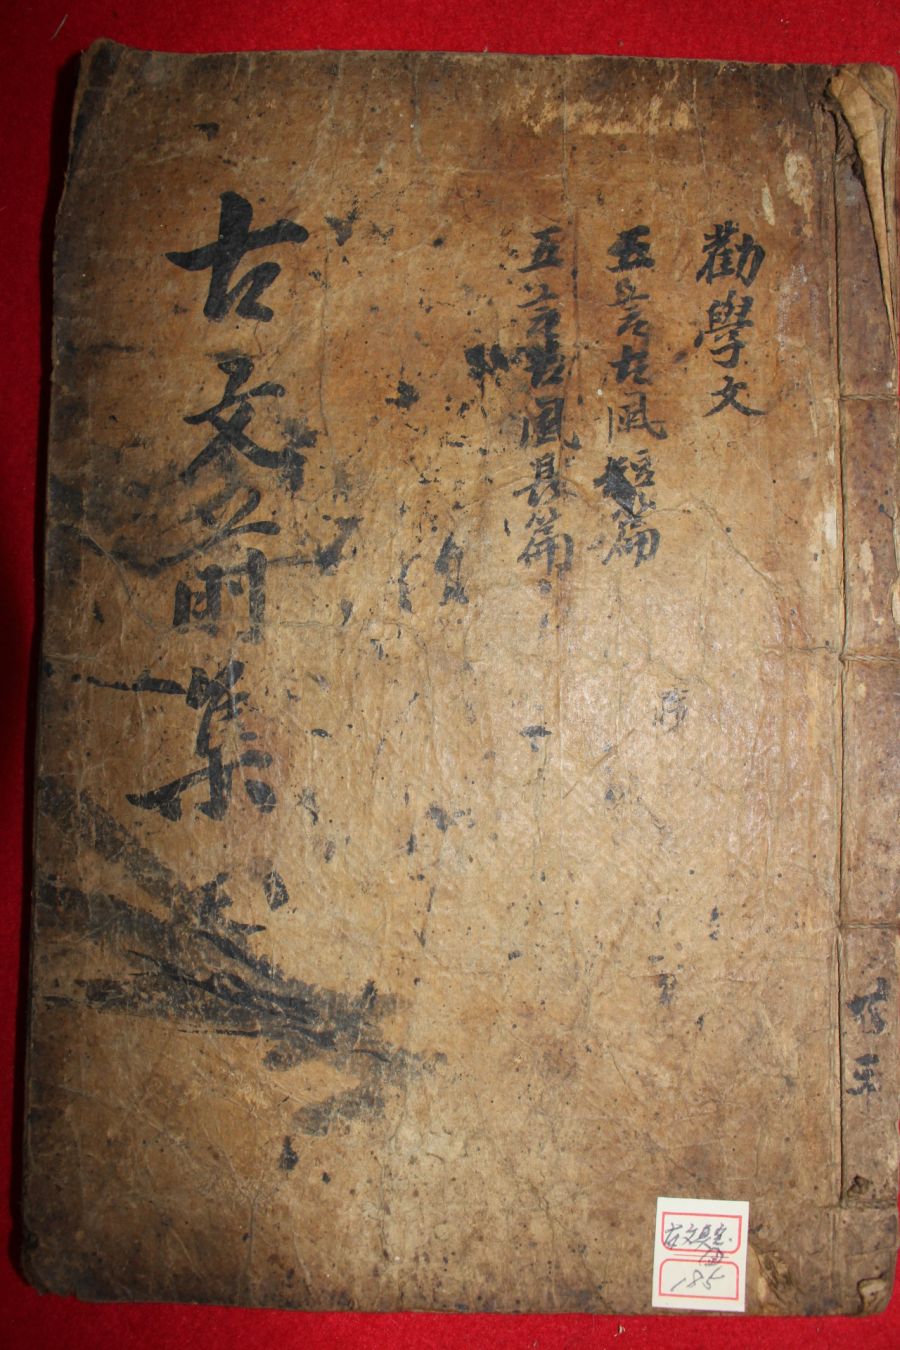 勸學文
五言古風短篇
五言古風長篇
古文前集
185